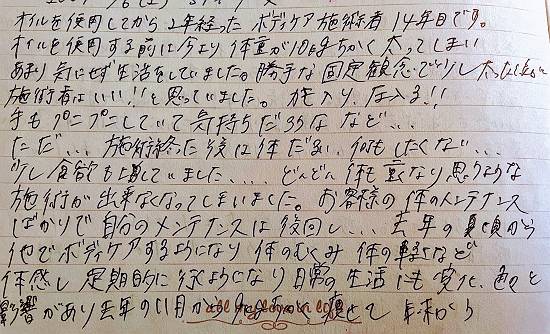 オイルを使用してから2年経った ボディケア施術者 14年目です。
オイルを使用する前に今より体重が10kgちかく太ってしまい
あまり気にせず生活をしていました。勝手な固定観念で少し太ったくらい
施術者はいい!!と思っていました。 圧入る!!
手もプニプニしていて気持ちだろうな など...
ただ... 施術終った後は体だるい 何もしたくない...
少し食欲も増していました.... どんどん 体も重くなり思うような
施術が出来なくなってしまいました。お客様の体のメンテナンス
ばかりで自分のメンテナンスは後回し... 去年の夏頃から
他でボディケアするようになり 体のむくみ 体の軽くなど
体感し 定期的に行くようになり日常の生活にも変化、色々と
影響があり去年の11月から 痩せて 年末から